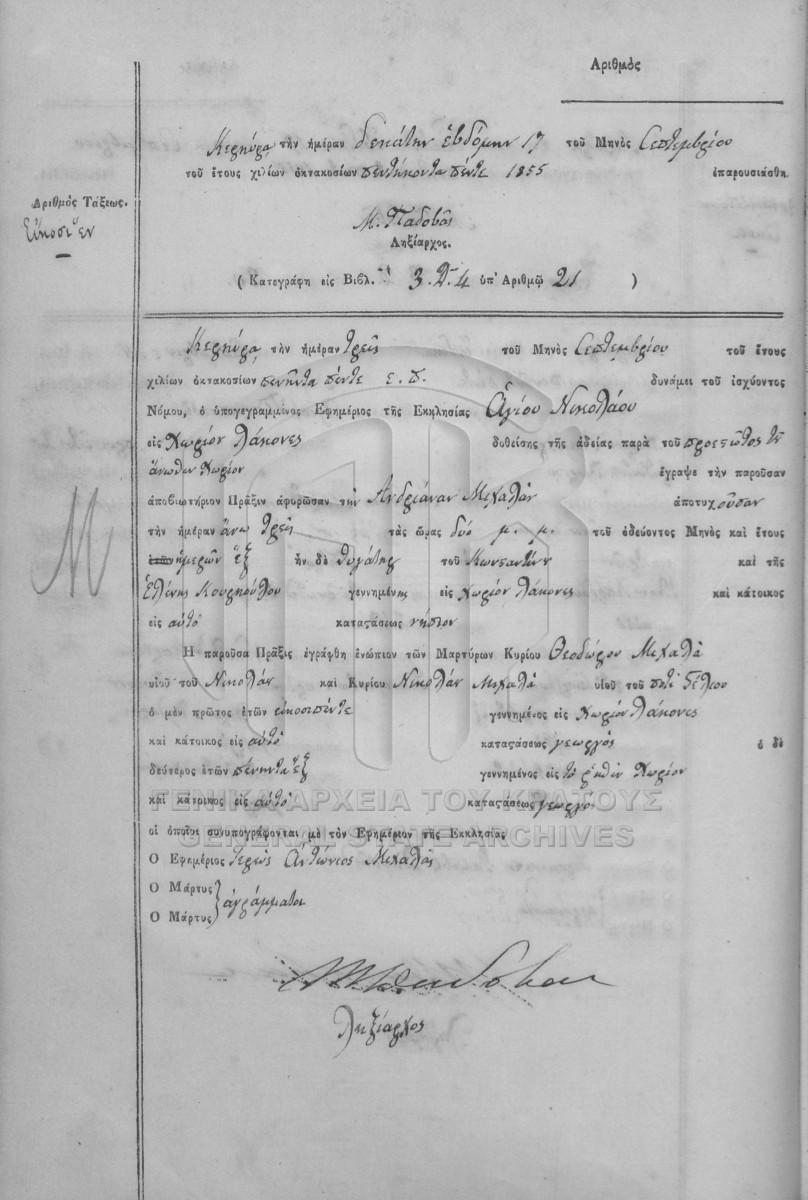 Ἀριθμός
Κερκύρα, τὴν ἡμέραν δεκάτην ἑβδόμην 17 τοῦ Μηνὸς Σεπτεμβρίου
τοῦ ἔτους χιλίων ὀκτακοσίων πεντήκοντα πέντε 1855 ἐπαρουσιάσθη.
Ἀριθμὸς Τάξεως.
Εἴκοσι ἕν
Μ. Παδοβᾶς
Ληξίαρχος.
( Κατεγράφη εἰς Βιβλ. 3. 4 ὑπ' Ἀριθμῷ 21 )
Κερκύρα, τὴν ἡμέραν τρεῖς τοῦ Μηνὸς Σεπτεμβρίου τοῦ ἔτους
χιλίων ὀκτακοσίων πενῆντα πέντε ε. π. δυνάμει τοῦ ἰσχύοντος
Νόμου, ὁ ὑπογεγραμμένος Ἐφημέριος τῆς Ἐκκλησίας Ἁγίου Νικολάου
εἰς Χωρίον Λάκονες δοθείσης τῆς ἀδείας παρὰ τοῦ προεστῶτος τοῦ
ἄνωθεν Χωρίου ἔγραψε τὴν παροῦσαν
ἀποβιωτήριον Πρᾶξιν ἀφορῶσαν τὴν Ἀνδριάναν Μιχαλᾶ ἀποτυχοῦσαν
τὴν ἡμέραν ἄνω τρεῖς τὰς ὥρας δύο μ. μ. τοῦ ὁδεύοντος Μηνὸς καὶ ἔτους
ἐτῶν ἡμερῶν ἕξ ἦν δὲ θυγάτηρ τοῦ Κωνσαντίνου καὶ τῆς
Ἑλένης Κουρκούλου γεννημένης εἰς Χωρίον Λάκονες καὶ κάτοικος
εἰς αὐτό καταςάσεως νήπιον
Ἡ παροῦσα Πρᾶξις ἐγράφθη ἐνώπιον τῶν Μαρτύρων Κυρίου Θεοδώρου Μιχαλᾶ
υἱοῦ τοῦ Νικολάου καὶ Κυρίου Νικολάου Μιχαλᾶ υἱοῦ τοῦ ποτὲ Στέλιου
ὁ μὲν πρῶτος ἐτῶν εἰκοσιπέντε γεννημένος εἰς Χωρίον Λάκονες
καὶ κάτοικος εἰς αὐτό καταςάσεως γεωργός ὁ δὲ
δεύτερος ἐτῶν πενῆντα ἕξ γεννημένος εἰς τὸ ῥηθὲν Χωρίον
καὶ κάτοικος εἰς αὐτό καταςάσεως γεωργός
ΓΕΝΙΚΑ ΑΡΧΕΙΑ ΤΟΥ ΚΡΑΤΟΥΣ
οἱ ὁποῖοι συνυπογράφονται μὲ τὸν Ἐφημέριον τῆς Ἐκκλησίας
GENERAL STATE ARCHIVES
Ὁ Ἐφημέριος Ἱερεὺς Ἀντώνιος Μιχαλᾶς
Ὁ Μάρτυς
ἀγράμματοι
Ὁ Μάρτυς
Ληξίαρχος